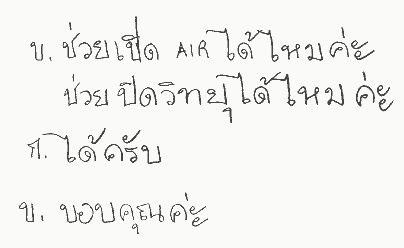 ข. ช่วยเปิด AIR ได้ไหมค่ะ
ช่วย ปิดวิทยุได้ไหม ค่ะ
ก. ได้ครับ
ข. ขอบคุณค่ะ